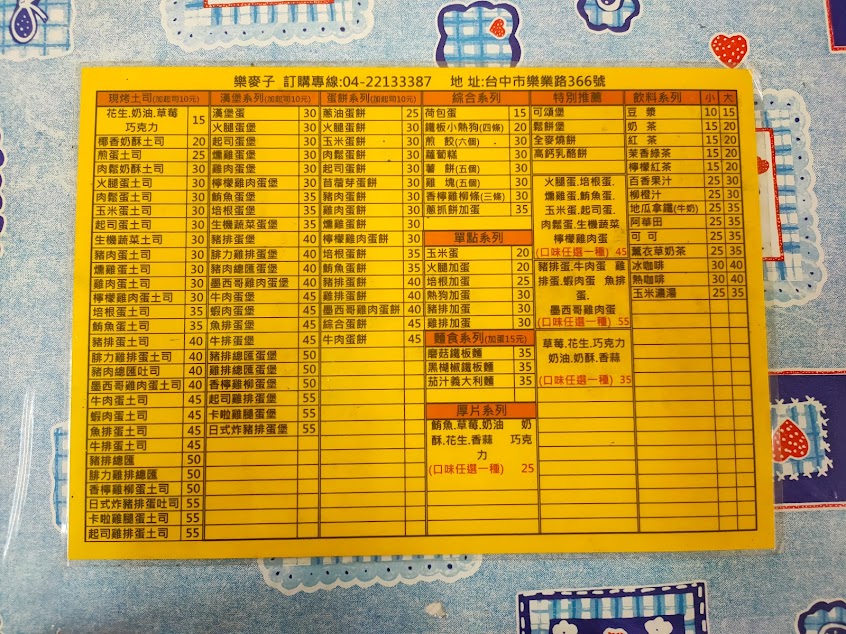 樂麥子 訂購專線:04-22133387 地 址:台中市樂業路366號
現烤土司(加起司10元)
花生.奶油.草莓 15
巧克力
椰香奶酥土司 20
煎蛋土司 25
肉鬆奶酥土司 30
火腿蛋土司 30
肉鬆蛋土司 30
玉米蛋土司 30
起司蛋土司 30
生機蔬菜土司 30
豬肉蛋土司 30
燻雞蛋土司 30
雞肉蛋土司 30
檸檬雞肉蛋土司 30
培根蛋土司 35
鮪魚蛋土司 35
豬排蛋土司 40
腓力雞排蛋土司 40
豬肉總匯吐司 40
墨西哥雞肉蛋土司 40
牛肉蛋土司 45
蝦肉蛋土司 45
魚排蛋土司 45
牛排蛋土司 45
豬排總匯 50
腓力雞排總匯 50
香檸雞柳蛋土司 50
日式炸豬排蛋吐司 55
卡啦雞腿蛋土司 55
起司雞排蛋土司 55
漢堡系列(加起司10元)
漢堡蛋 30
火腿蛋堡 30
起司蛋堡 30
燻雞蛋堡 30
雞肉蛋堡 30
檸檬雞肉蛋堡 30
鮪魚蛋堡 35
培根蛋堡 35
生機蔬菜蛋堡 35
豬排蛋堡 40
腓力雞排蛋堡 40
豬肉總匯蛋堡 40
墨西哥雞肉蛋堡 40
牛肉蛋堡 45
蝦肉蛋堡 45
魚排蛋堡 45
牛排蛋堡 45
豬排總匯蛋堡 50
雞排總匯蛋堡 50
香檸雞柳蛋堡 50
起司雞排蛋堡 55
卡啦雞腿蛋堡 55
日式炸豬排蛋堡 55
蛋餅系列(加起司10元)
蔥油蛋餅 25
火腿蛋餅 30
玉米蛋餅 30
肉鬆蛋餅 30
起司蛋餅 30
苜蓿芽蛋餅 30
豬肉蛋餅 30
雞肉蛋餅 30
燻雞蛋餅 30
檸檬雞肉蛋餅 30
培根蛋餅 35
鮪魚蛋餅 35
豬排蛋餅 40
雞排蛋餅 40
墨西哥雞肉蛋餅 40
綜合蛋餅 45
牛肉蛋餅 45
綜合系列
荷包蛋 15
鐵板小熱狗(四條) 20
煎 餃(六個) 30
蘿蔔糕 30
薯 餅(五個) 30
雞 塊(五個) 30
香檸雞柳條(三條) 30
蔥抓餅加蛋 35
單點系列
玉米蛋 20
火腿加蛋 20
培根加蛋 25
熱狗加蛋 30
豬排加蛋 30
雞排加蛋 30
麵食系列(加蛋15元)
磨菇鐵板麵 35
黑椒鐵板麵 35
茄汁義大利麵 35
厚片系列
鮪魚.草莓.奶油 奶
酥.花生.香蒜 巧克
力
(口味任選一種) 25
特別推薦
可頌堡
鬆餅堡
全麥燒餅
高鈣乳酪餅
火腿蛋.培根蛋.
燻雞蛋.鮪魚蛋.
玉米蛋.起司蛋.
肉鬆蛋.生機蔬菜
檸檬雞肉蛋
(口味任選一種) 45
豬排蛋.牛肉蛋 雞
排蛋.蝦肉蛋 魚排
蛋.
墨西哥雞肉蛋
(口味任選一種) 55
草莓.花生.巧克力
奶油.奶酥.香蒜
(口味任選一種) 35
飲料系列 小 大
豆 漿 10 15
奶 茶 15 20
紅 茶 15 20
茉香綠茶 15 20
檸檬紅茶 15 20
百香果汁 25 30
柳橙汁 25 30
地瓜拿鐵(牛奶) 25 35
阿華田 25 35
可 可 25 35
薰衣草奶茶 25 35
冰咖啡 30 40
熱咖啡 30 40
玉米濃湯 25 35